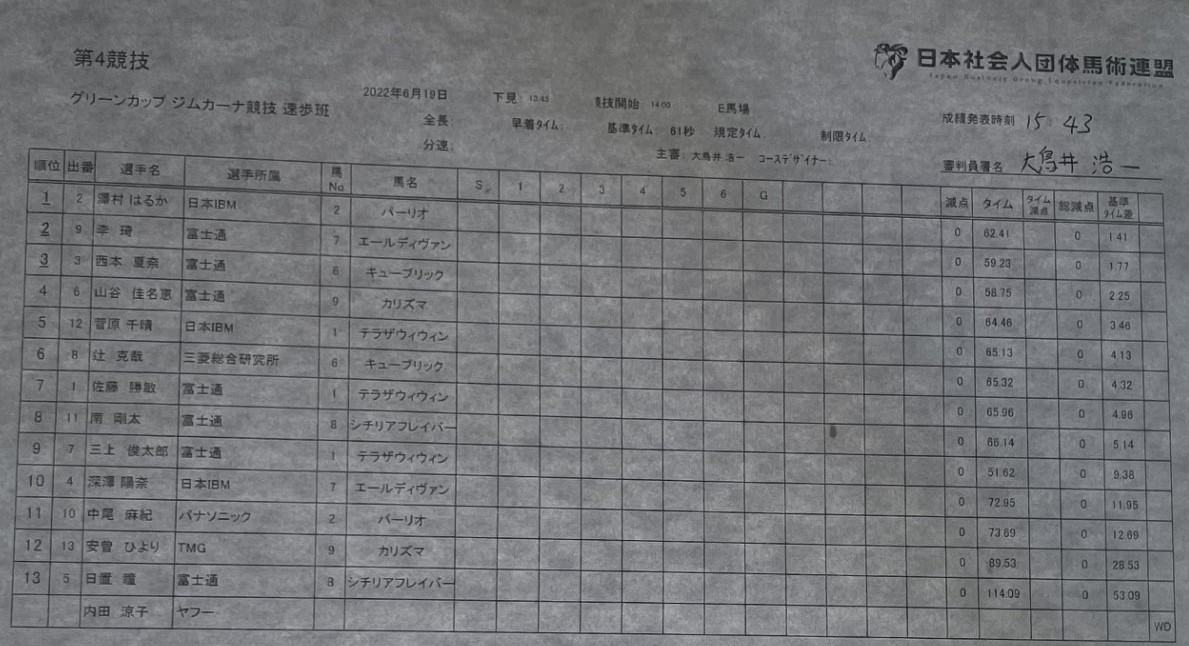 第4競技
日本社会人団体馬術連盟
Japan Business Group Equestrian Federation
グリーンカップ ジムカーナ競技 速歩班 2022年6月19日 下見: 13:45 競技開始 14:00 E馬場
全長: 早着タイム: 基準タイム 61秒 規定タイム: 制限タイム:
成績発表時刻 15:43
分速: 主審: 大鳥井 浩一 コースデザイナー:
審判員署名 大鳥井 浩一
順位 出番 選手名 選手所属 馬No. 馬名 S 1 2 3 4 5 6 G 減点 タイム タイム減点 総減点 基準タイム差
1 2 澤村 はるか 日本IBM 2 バーリオ 0 62.41 0 1.41
2 9 李 琦 富士通 7 エールディヴァン 0 59.23 0 1.77
3 3 西本 夏奈 富士通 6 キューブリック 0 58.75 0 2.25
4 6 山谷 佳名恵 富士通 9 カリズマ 0 64.46 0 3.46
5 12 菅原 千晴 日本IBM 1 テラザウィウィン 0 65.13 0 4.13
6 8 辻 克哉 三菱総合研究所 6 キューブリック 0 65.32 0 4.32
7 1 佐藤 勝敏 富士通 1 テラザウィウィン 0 65.96 0 4.96
8 11 南 剛太 富士通 8 シチリアフレイバー 0 66.14 0 5.14
9 7 三上 俊太郎 富士通 1 テラザウィウィン 0 51.62 0 9.38
10 4 深澤 陽奈 日本IBM 7 エールディヴァン 0 72.95 0 11.95
11 10 中尾 麻紀 パナソニック 2 バーリオ 0 73.69 0 12.69
12 13 安曽 ひより TMG 9 カリズマ 0 89.53 0 28.53
13 5 日置 瞳 富士通 8 シチリアフレイバー 0 114.09 0 53.09
内田 涼子 ヤフー WD